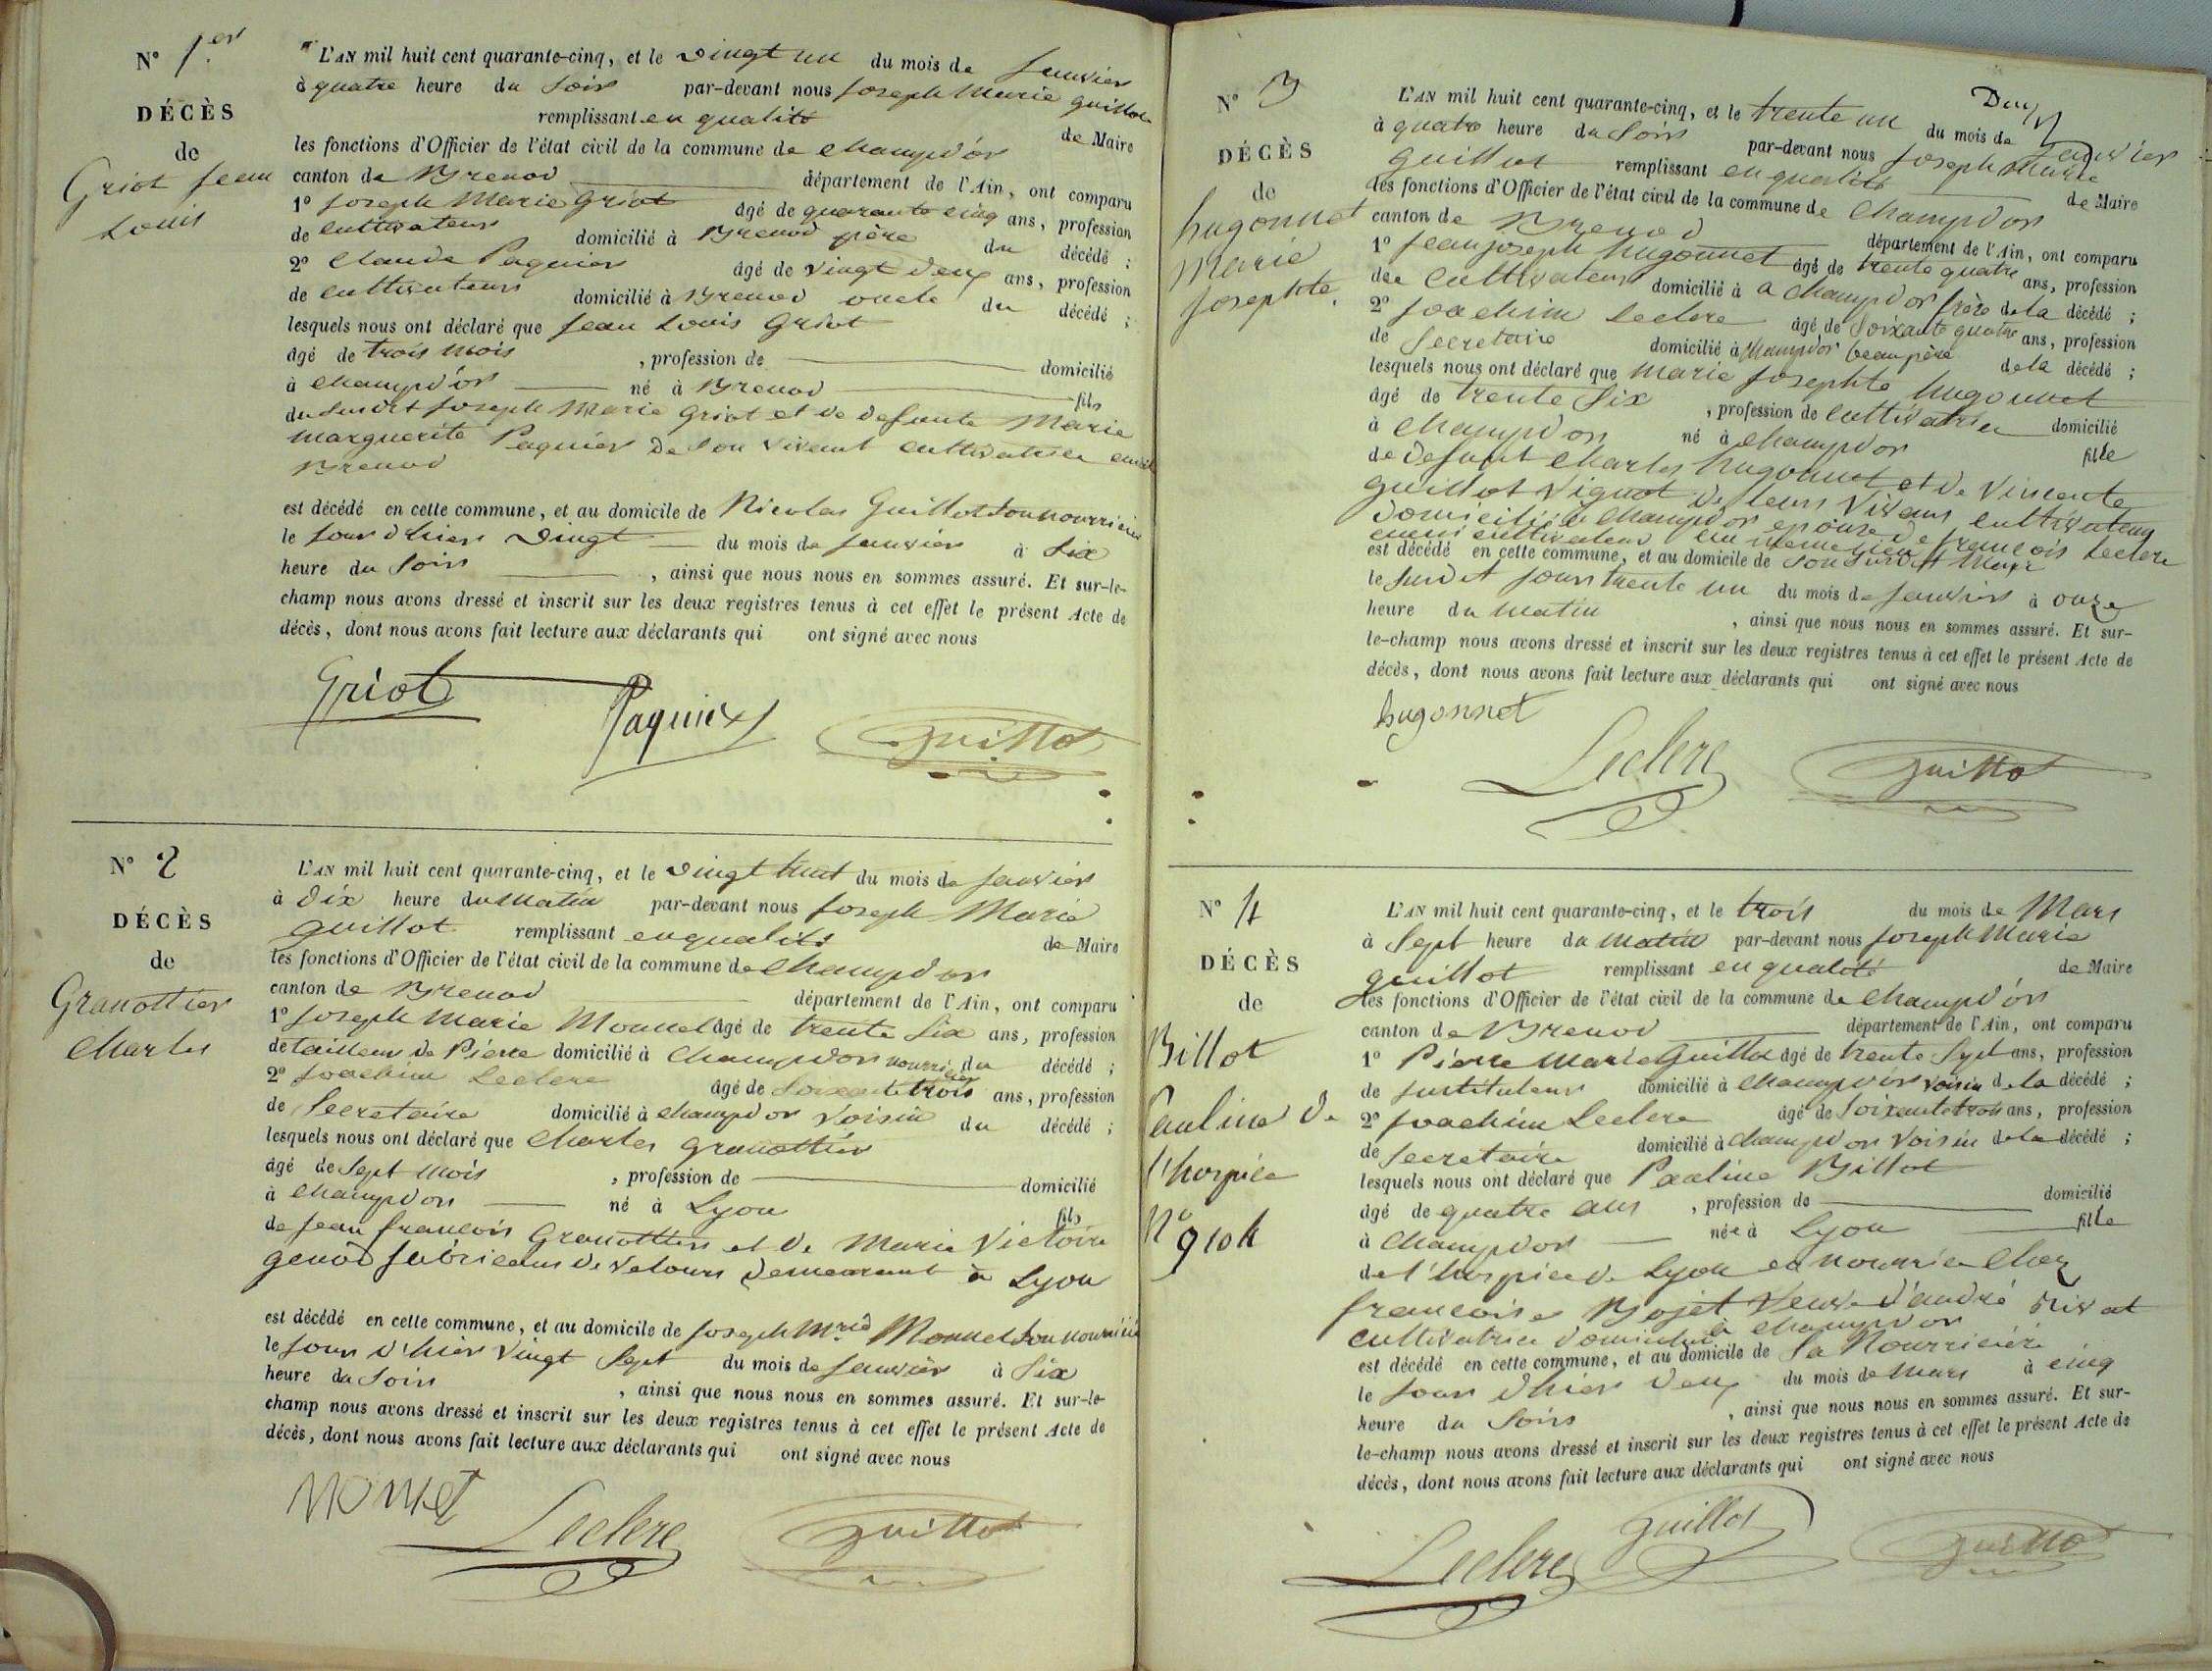 N° 1er
DÉCÈS
de
Griot Jean
Louis
L'AN mil huit cent quarante-cinq, et le vingt un du mois de Janvier
à quatre heure du Soir par-devant nous Joseph Marie Guillot
remplissant en qualité de Maire
les fonctions d'Officier de l'état civil de la commune de Champd'or
canton de Brenod département de l'Ain, ont comparu
1° Joseph Marie Griot âgé de quarante cinq ans, profession
de cultivateur domicilié à Brenod père du décédé ;
2° Claude Paquier âgé de vingt deux ans, profession
de cultivateur domicilié à Brenod oncle du décédé ;
lesquels nous ont déclaré que Jean Louis Griot
âgé de trois mois , profession de domicilié
à Champd'or né à Brenod fils
du Susdit Joseph Marie Griot et de defunte Marie
Marguerite Paquier de Son vivant cultivatrice
Brenod
est décédé en cette commune, et au domicile de Nicolas Guillot Son nourricier
le Jour d'hier vingt du mois de Janvier à Six
heure du Soir , ainsi que nous nous en sommes assuré. Et sur-le-
champ nous avons dressé et inscrit sur les deux registres tenus à cet effet le présent Acte de
décès, dont nous avons fait lecture aux déclarants qui ont signé avec nous
Griot Paquier Guillot
N° 2
DÉCÈS
de
Granottier
Charles
L'AN mil huit cent quarante-cinq, et le vingt huit du mois de Janvier
à Dix heure du Matin par-devant nous Joseph Marie
Guillot remplissant en qualité de Maire
les fonctions d'Officier de l'état civil de la commune de Champd'or
canton de Brenod département de l'Ain, ont comparu
1° Joseph Marie Monnet âgé de trente Six ans, profession
de tailleur de Pierre domicilié à Champdor nourricier du décédé ;
2° Joachim Leclerc âgé de Soixante trois ans, profession
de Secretaire domicilié à Champdor Voisin du décédé ;
lesquels nous ont déclaré que Charles Granottier
âgé de Sept mois , profession de domicilié
à Champdor né à Lyon fils
de Jean françois Granottier et de Marie Victoire
Genod fabricans de Velours demeurant à Lyon
est décédé en cette commune, et au domicile de Joseph Mrie Monnet Son nourricier
le Jour d'hier Vingt Sept du mois de Janvier à Six
heure du Soir , ainsi que nous nous en sommes assuré. Et sur-le-
champ nous avons dressé et inscrit sur les deux registres tenus à cet effet le présent Acte de
décès, dont nous avons fait lecture aux déclarants qui ont signé avec nous
Monnet Leclerc Guillot
Deux
N° 3
DÉCÈS
de
hugonnet
Marie
Josephte
L'AN mil huit cent quarante-cinq, et le trente un du mois de Janvier
à quatre heure du Soir par-devant nous Joseph Marie
Guillot remplissant en qualité de Maire
les fonctions d'Officier de l'état civil de la commune de Champdor
canton de Brenod département de l'Ain, ont comparu
1° Jean Joseph hugonnet âgé de trente quatre ans, profession
de Cultivateur domicilié à a Champdor frère de la décédé ;
2° Joachim Leclerc âgé de Soixante quatre ans, profession
de Secretaire domicilié à Champdor beaupère de la décédé ;
lesquels nous ont déclaré que Marie Josephte hugonnet
âgé de trente Six , profession de Cultivatrice domicilié
à Champdor né à Champdor fille
de Defunt Charles hugonnet et de Vincente
Guillot Vignot de leurs Vivans cultivateurs
domiciliés à Champdor epouse de françois Leclerc
cultivateur au même lieu
est décédé en cette commune, et au domicile de Son Susdit Mari
le Susdit Jour trente un du mois de Janvier à onze
heure du Matin , ainsi que nous nous en sommes assuré. Et sur-
le-champ nous avons dressé et inscrit sur les deux registres tenus à cet effet le présent Acte de
décès, dont nous avons fait lecture aux déclarants qui ont signé avec nous
hugonnet Leclerc Guillot
N° 4
DÉCÈS
de
Billot
Pauline de
l'hospice
N° 9104
L'AN mil huit cent quarante-cinq, et le trois du mois de Mars
à Sept heure du Matin par-devant nous Joseph Marie
Guillot remplissant en qualité de Maire
les fonctions d'Officier de l'état civil de la commune de Champd'or
canton de Brenod département de l'Ain, ont comparu
1° Pierre Marie Guillot âgé de trente Sept ans, profession
de Instituteur domicilié à Champd'or voisin de la décédé ;
2° Joachim Leclerc âgé de Soixante trois ans, profession
de Secretaire domicilié à Champdor Voisin de la décédé ;
lesquels nous ont déclaré que Pauline Billot
âgé de quatre ans , profession de domicilié
à Champdor née à Lyon fille
de l'hospice de Lyon en nourrice Chez
françoise Bojet Veuve d'andré Rivat
cultivatrice domiciliée à Champdor
est décédé en cette commune, et au domicile de Sa Nourriciere
le Jour d'hier deux du mois de Mars à cinq
heure du Soir , ainsi que nous nous en sommes assuré. Et sur-
le-champ nous avons dressé et inscrit sur les deux registres tenus à cet effet le présent Acte de
décès, dont nous avons fait lecture aux déclarants qui ont signé avec nous
Leclerc Guillot Guillot